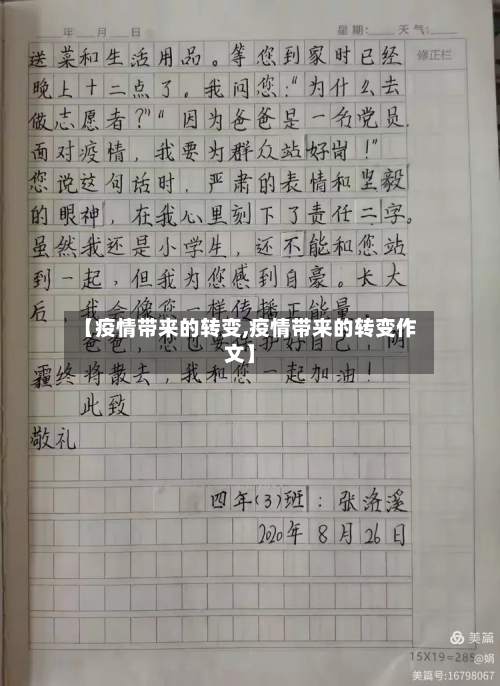 年 月 日 星期: 天气:
修正栏
送菜和生活用品。等您到家时已经
晚上十二点了。我问您:“为什么去
做志愿者?”“因为爸爸是一名党员,
面对疫情,我要为群众站好岗!”
您说这句话时,严肃的表情和坚毅
的眼神,在我心里刻下了责任二字。
虽然我还是小学生,还不能和您站
到一起,但我为您感到自豪。长大
后,我会像您一样传播正能量。
【疫情带来的转变,疫情带来的转变作
文】
爸爸,您也要保护好自己,阴
霾终将散去,我和您一起加油!
此致
敬礼
四年(3)班:张洛溪
2020年8月26日
美篇
15X19=285
@娟
美篇号:16798067